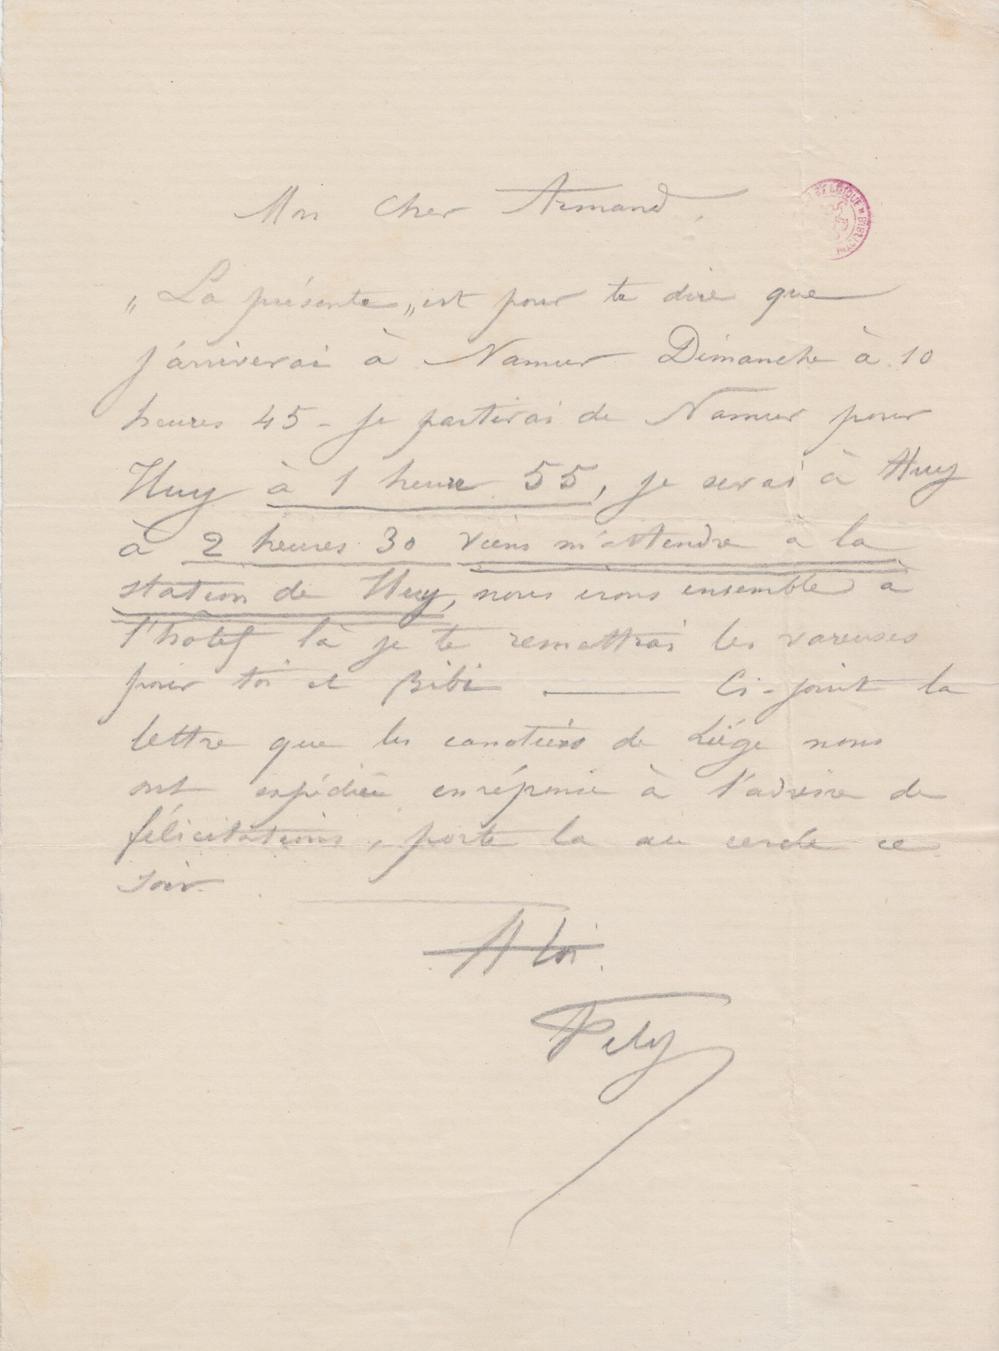 Mon Cher Armand,
„La présente„ est pour te dire que
j'arriverai à Namur Dimanche à 10
heures 45 - Je partirai de Namur pour
Huy à 1 heure 55, je serai à Huy
à 2 heures 30 viens m'attendre à la
station de Huy, nous irons ensemble à
l'hotel là je te remettrai les vareuses
pour toi et Bibi ——— Ci-joint la
lettre que les canotiers de Liége nous
ont expédiée en réponse à l'adresse de
félicitations, porte la au cercle ce
soir.
A toi.
Fély